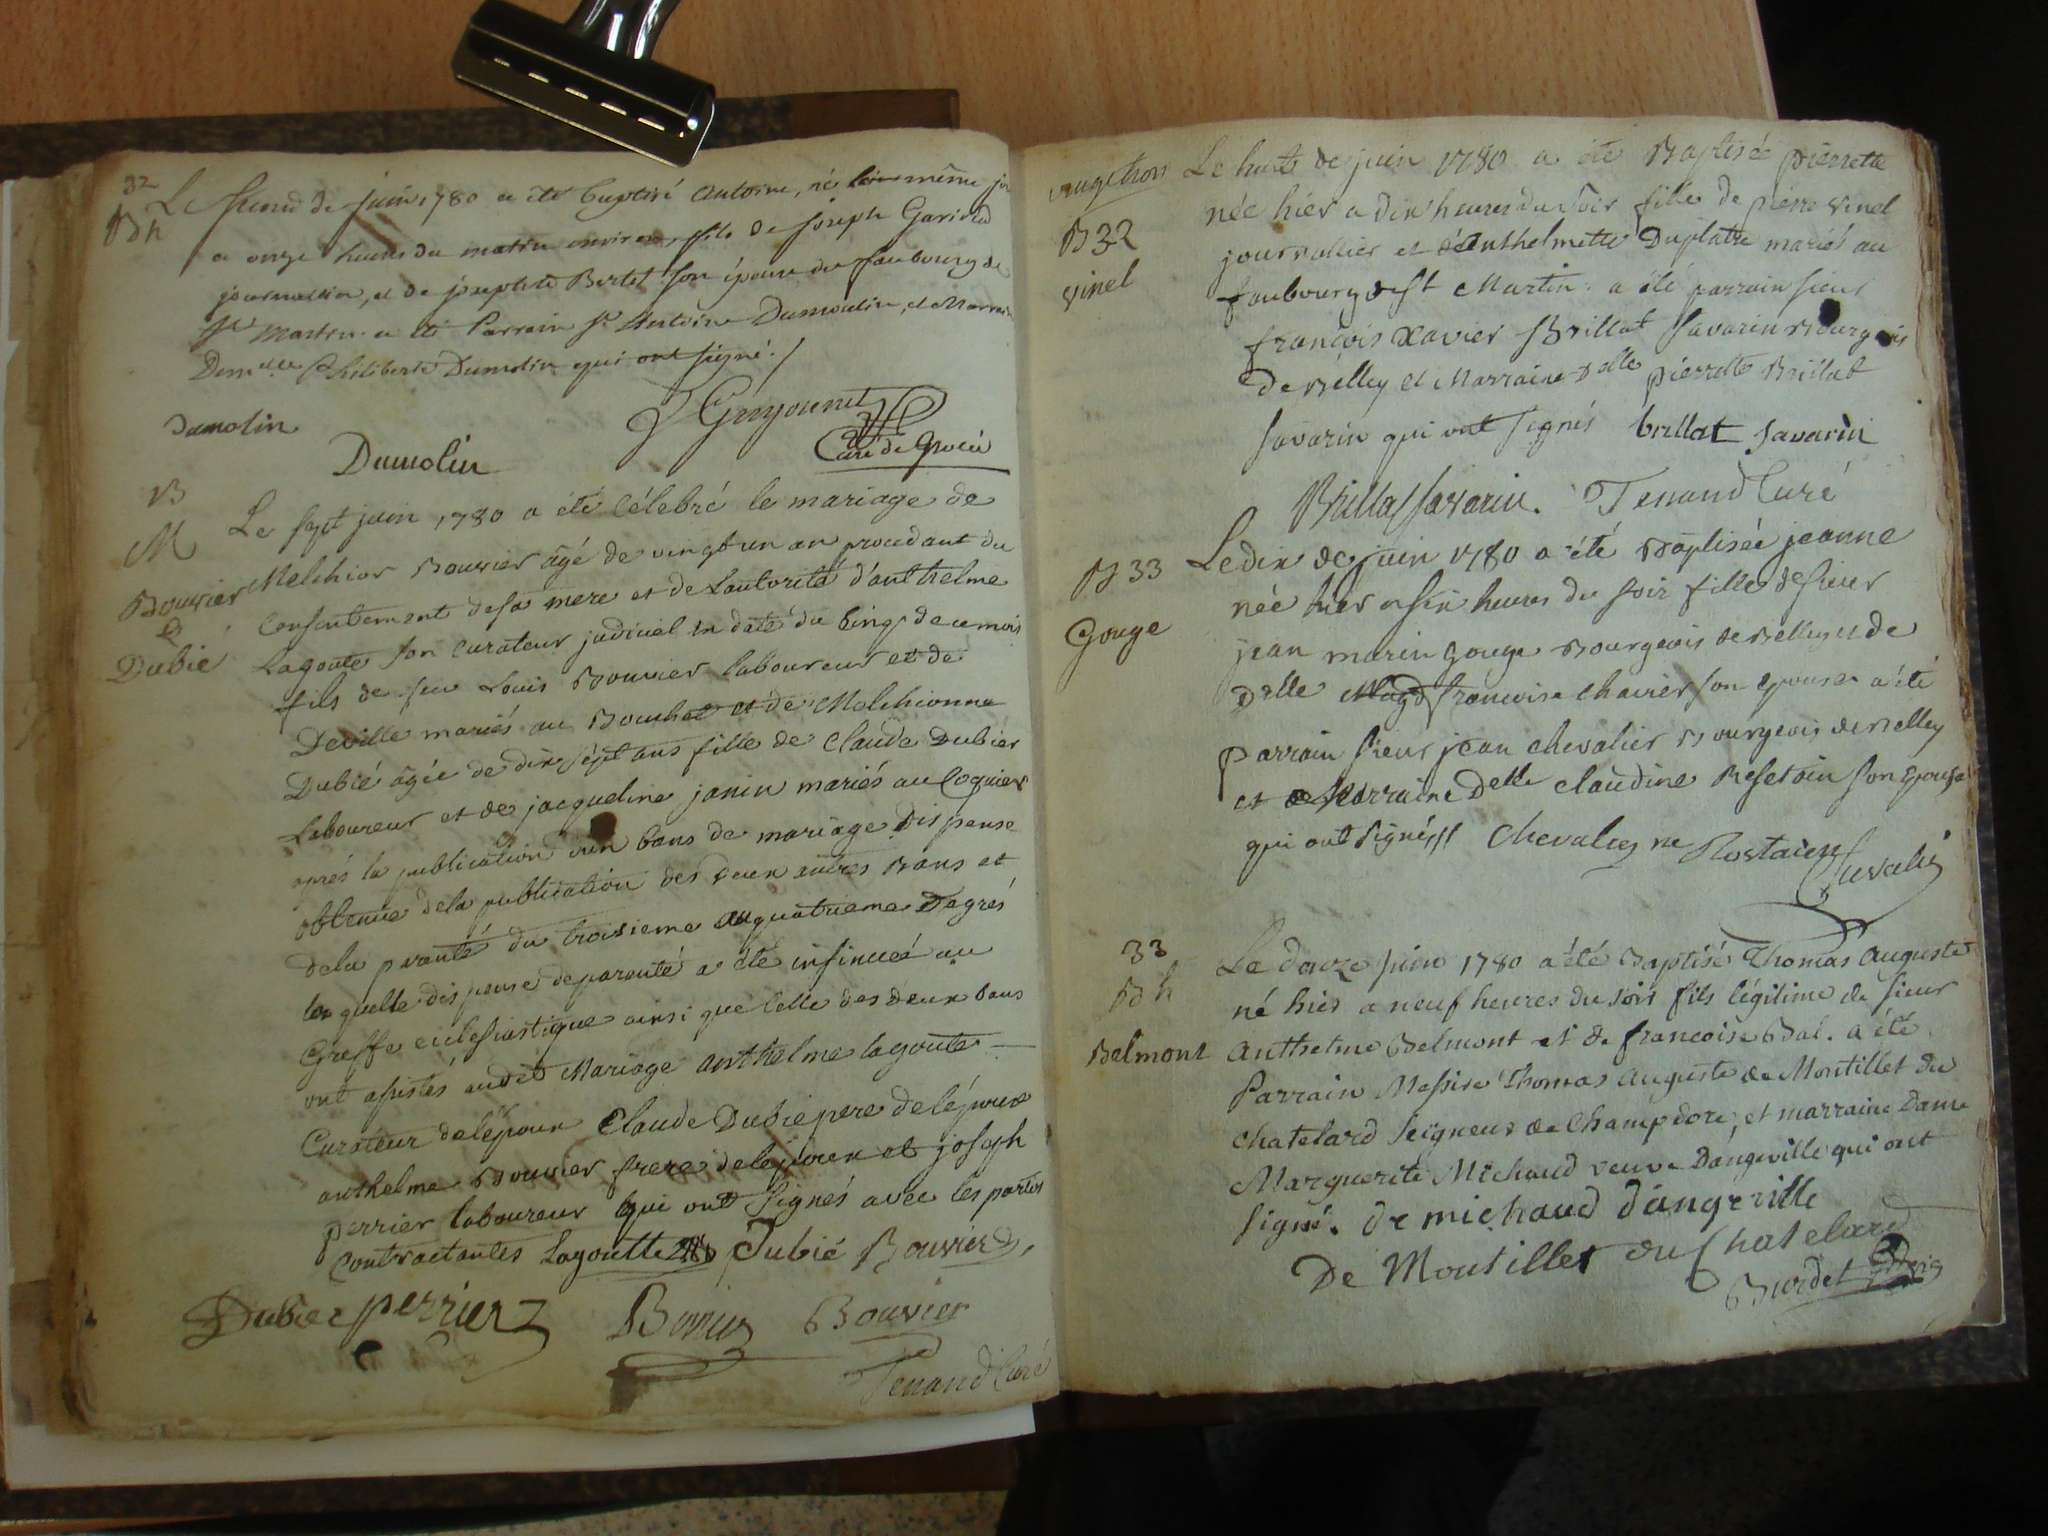 32
Bh
Le second de juin 1780 a été baptisé antoine, né le même jo
a onze heures du matin environ, fils de joseph Gariod
journallier, et de josephte Bertet son épouse du faubourg de
St Martin. a été Parrain Sr Antoine Dumoulin, et Marraine
Demelle Philiberte Dumolin qui ont signé./.
Dumolin
Dumolin
Guyonnet
Curé de
B
M
Bouvier
&
Dubié
Le sept juin 1780 a été Célébré le mariage de
Melchior Bouvier âgé de vingt un an procédant du
Consentement de sa mere et de Lautorité d'anthelme
Lagoute son Curateur judiciel en daté du Cinq de ce mois
fils de feu Louis Bouvier laboureur et de
Deville mariés au Bouchet et de Melchionne
Dubié âgée de dix sept ans fille de Claude Dubier
Laboureur et de jacqueline janin mariés au Coquier
aprés la publication d'un bans de mariage Dispense
obtenue de la publication des deux autres Bans et
de la paranté du troisieme au quatrieme Degrés
la quelle dispense de parenté a été insinuée au
Greffe eclesiastique ainsi que Celle des deux bans
ont assistés audit Mariage anthelme lagoute
Curateur de lépoux Claude Dubié pere de lépouse
anthelme Bouvier frere de lepoux et joseph
perrier laboureur qui ont signés avec les parties
Contractantes Lagoutte Dubié Bouvier
Dubiez perrier Bouvier Bouvier
Tenand Curé
Le huit de juin 1780 a été Baptisée pierrette
B 32
vinel
née hier a dix heures du soir fille de pierre vinel
journallier et d'Anthelmette Duplatre mariés au
faubourg de St Martin. a été parrain sieur
françois xavier Brillat Savarin Bourgeois
de Belley et Marraine Delle pierrette Brillat
Savarin qui ont signés brillat savarin
Brillat Savarin. Tenand Curé
B 33
Gouge
Le dix de juin 1780 a été Baptisée jeanne
née hier a six heures du soir fille de sieur
jean marin gouge Bourgeois de Belley et de
Delle Magd françoise chavier son epouse a été
parrain sieur jean chevalier Bourgeois de Belley
et Marraine Delle claudine Resetain son epouse
qui ont signés // chevalier ne Rostaien
Chevalier
33
Bh
Belmont
Le douze juin 1780 a été Baptisé Thomas Auguste
né hier a neuf heures du soir fils légitime de sieur
Anthelme Belmont et de françoise Bal. a été
Parrain Messire Thomas Auguste de Montillet du
chatelard seigneur de Champdore, et marraine Dame
Marguerite Michaud veuve Dangeville qui ont
signé. de michaud d'angeville
De Montillet du Chatelard
Burdet